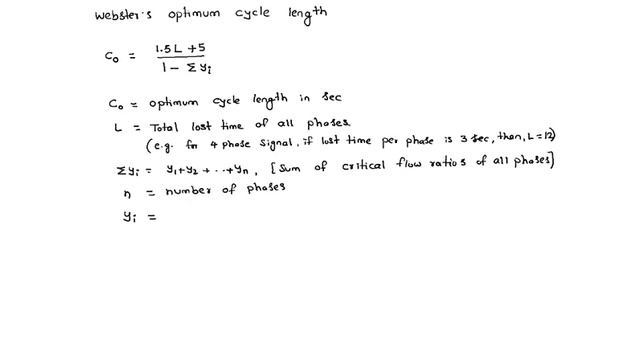 Webster's optimum cycle length
C₀ = 1.5L + 5 / 1 - Σyᵢ
C₀ = optimum cycle length in sec
L = Total lost time of all phases
(e.g. for 4 phase signal, if lost time per phase is 3 sec, then, L=12)
Σyᵢ = y₁+y₂ + ..+yₙ, [sum of critical flow ratios of all phases]
n = number of phases
yᵢ =